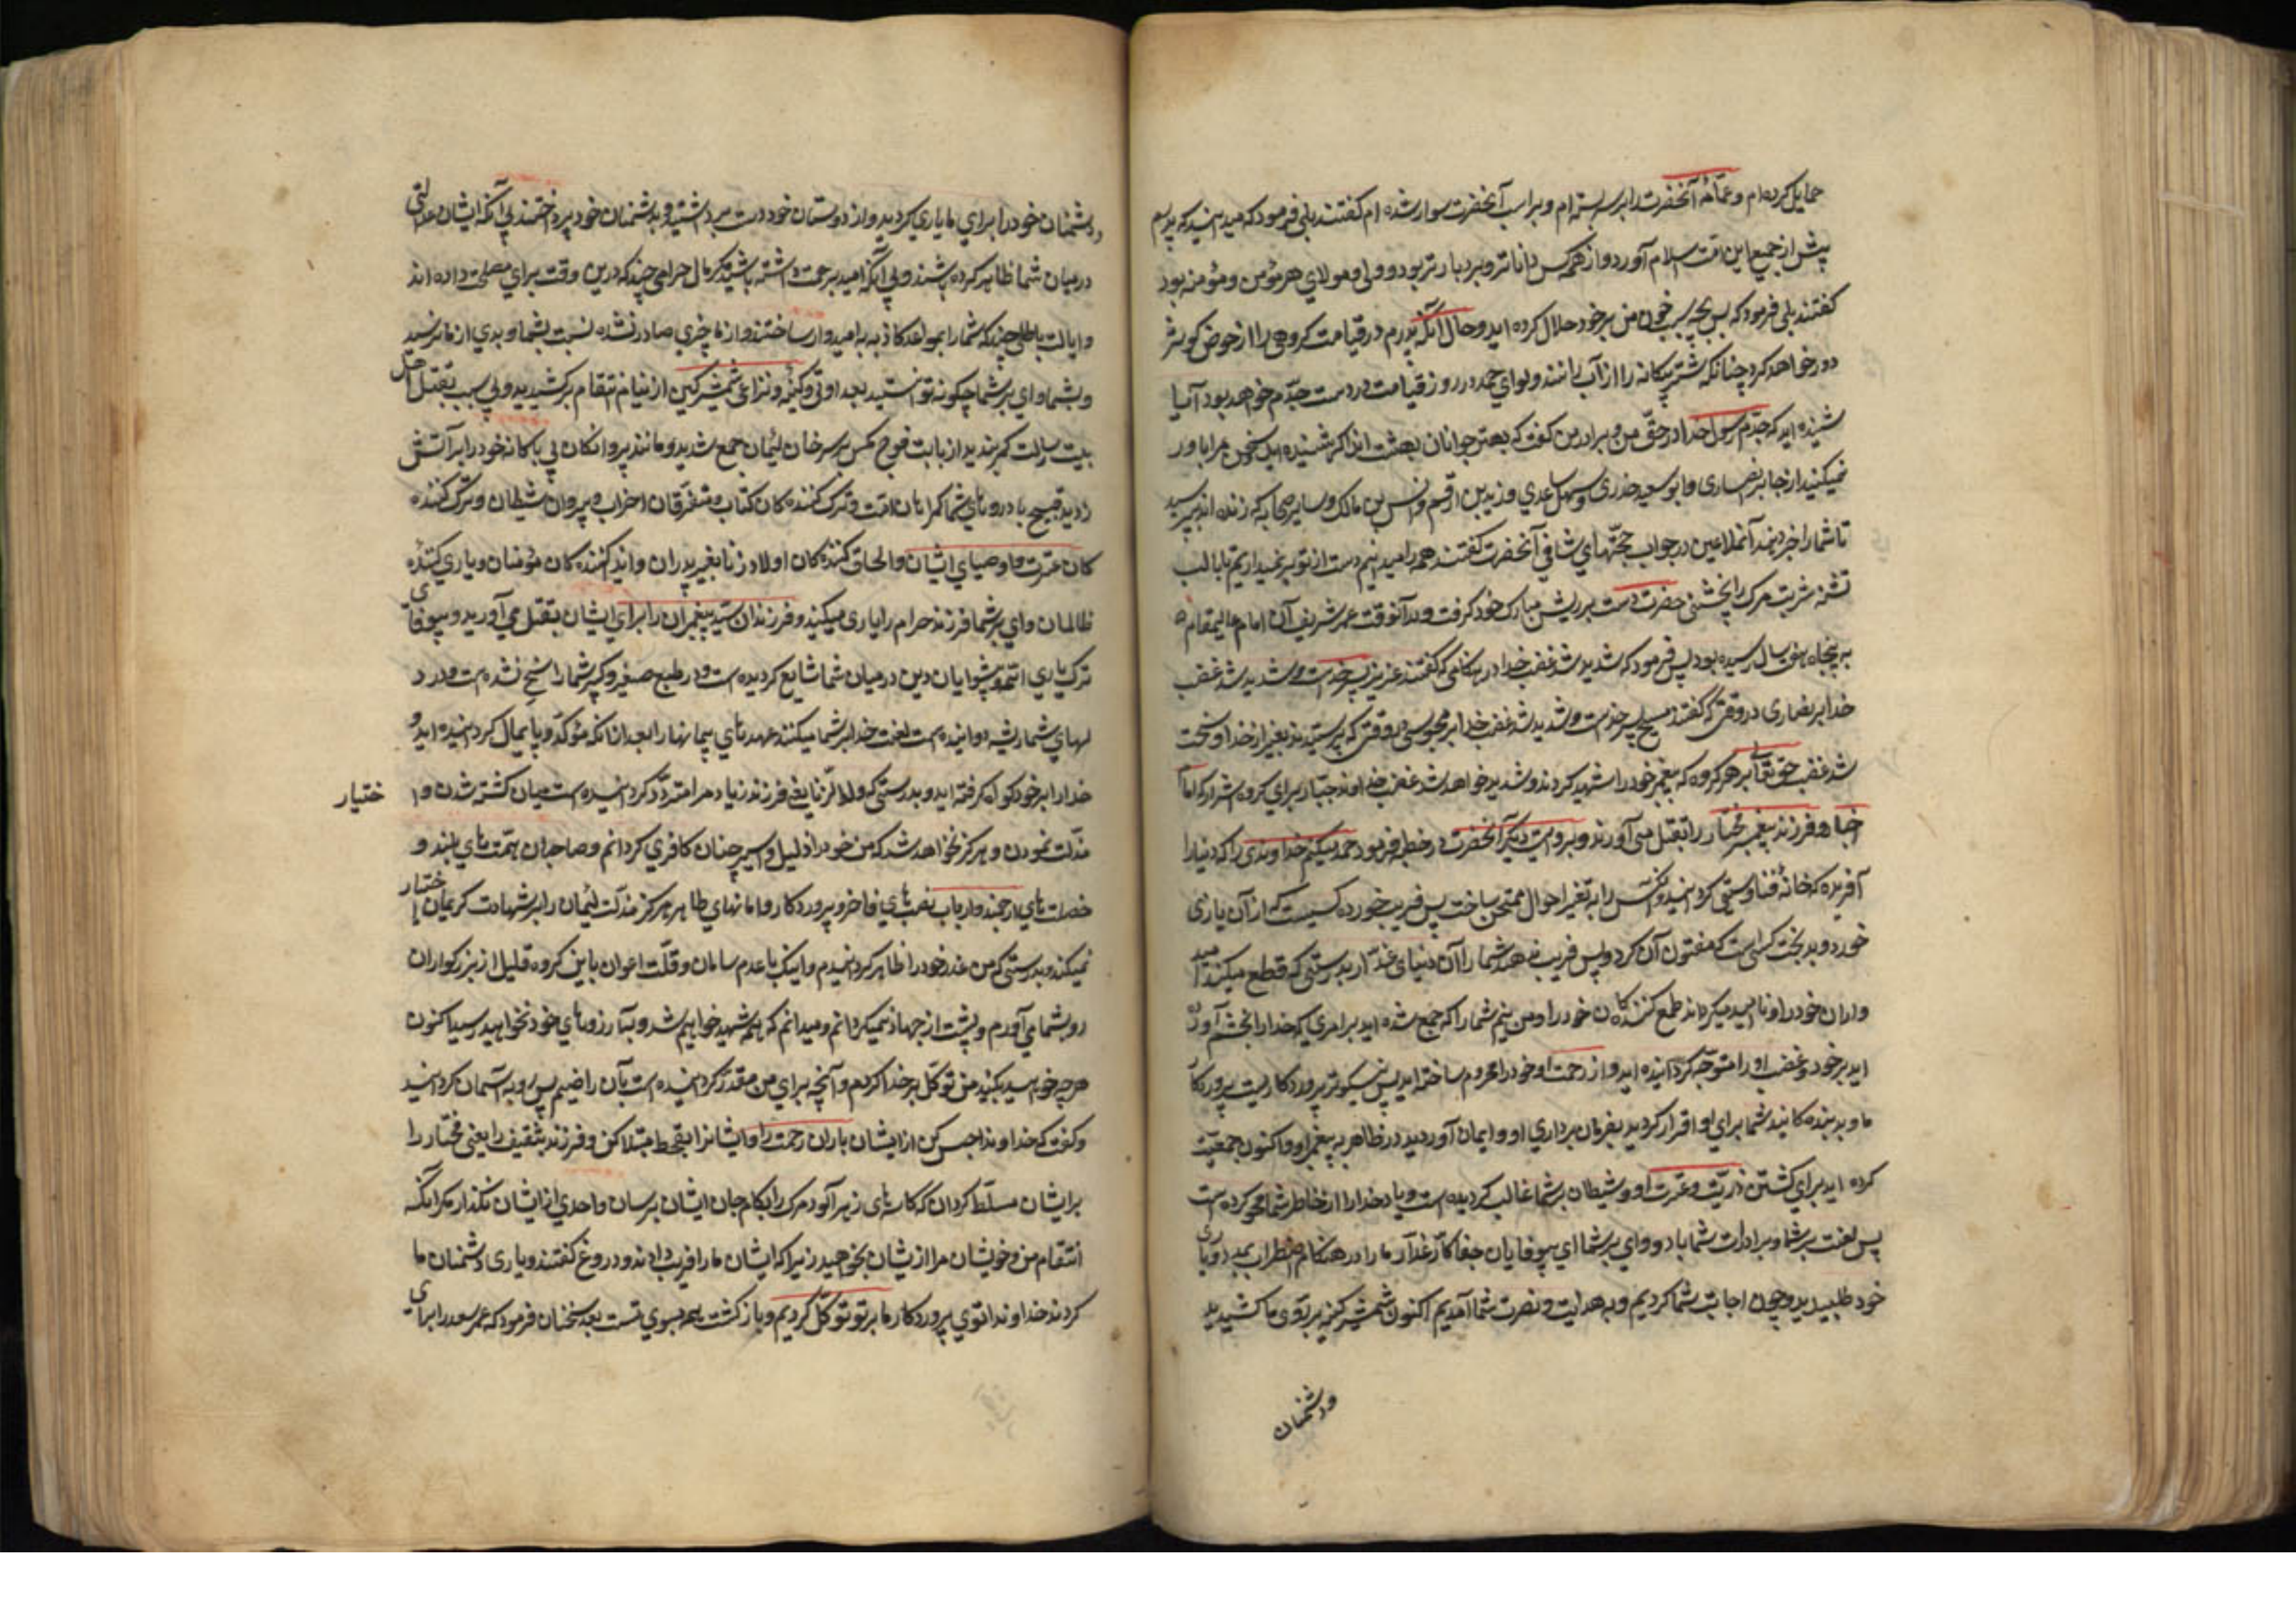 حمایل کرده‌ام و عمّامهٔ آنحضرت را بر سر بسته‌ام و بر اسب آنحضرت سوار شده‌ام کفتند بلی فرمود که میدانید که پدرم
پیش از جمیع این امّت اسلام آورد و از همه کس داناتر و بردبارتر بود و ولی و مولای هر مؤمن و مؤمنه بود
کفتند بلی فرمود که پس بچه سبب خون من بر خود حلال کرده‌اید و حال آنکه پدرم در قیامت کروهی را از حوض کوثر
دور خواهد کرد چنانکه شتر بیکانه را از آب رانند و لوای حمد در روز قیامت در دست جدّم خواهد بود آیا
شنیده‌اید که جدّم رسول خدا در حقّ من و برادر من کفت که بهتر جوانان بهشت‌اند اکر شنیده‌اید سخن مرا باور
نمیکنید از جابر انصاری و ابو سعید خدری و سهل ساعدی و زید بن ارقم و انس بن مالک و سایر صحابه که زنده‌اند بپرسید
تا شما را خبر دهند آنملاعین در جواب حجّتهای شافی آنحضرت کفتند همه را میدانیم دست از تو بر نمیداریم تا با لب
تشنه شربت مرک را بچشی حضرت دست بر ریش مبارک خود کرفت و در آنوقت عمر شریف آن امام عالیمقام
به پنجاه هفت سال رسیده بود پس فرمود که شدید شد غضب خدا در هنکامی که کفتند عزیز پسر خداست و شدید شد غضب
خدا بر نصاری در وقتی که کفتند مسیح پسر خداست و شدید شد غضب خدا بر مجوس در وقتی که پرستیدند بغیر از خدا و سخت
شد غضب حق تعالی بر هر کروه که پیغمبر خود را شهید کردند و شدید خواهد شد غضب خداوند جبّار برای کروه اشرار که امام
اخیار و فرزند پیغمبر مختار را بقتل می‌آورند و بروایت دیکر آنحضرت در خطبه فرمود حمد میکنم خداوندی را که دنیا را
آفریده که خانهٔ فنا و نیستی کردانید و اهلش را به تغیر احوال ممتحن ساخت پس فریب خورده کسیست که از آن بازی
خورد و بدبخت کسی است که مفتون آن کردد پس فریب ندهد شما را آن دنیای غدّار بدرستی که قطع میکند امید
واران خود را و ناامید میکرداند طمع کنندکان خود را و من بینم شما را که جمع شده‌اید بر امری که خدا را بخشم آورده
اید بر خود و غضب او را متوجّه کردانیده‌اید و از رحمت او خود را محروم ساخته‌اید پس نیکو پروردکاریست پروردکار
ما و بد بنده‌کانید شما برای او اقرار کردید بفرمان برداری او و ایمان آوردید در ظاهر به پیغمبر او و اکنون جمعیّت
کرده‌اید برای کشتن ذریّت و عترت او و شیطان بر شما غالب کردیده است و یاد خدا را از خاطر شما محو کرده است
پس لعنت بر شما و بر ارادات شما باد و وای بر شما ای بیوفایان جفاکار غدّار ما را در هنکام اضطراب بمدد و یاری
خود طلبیدید و چون اجابت شما کردیم و به هدایت و نصرت شما آمدیم اکنون شمشیر کینه بر روی ما کشیدید
و دشمنان
و دشمنان خود را برای ما یاری کردید و از دوستان خود دست برداشتید و بدشمنان خود پرداختید بی آنکه ایشان عدالتی
در میان شما ظاهر کرده باشند و بی آنکه امید رحمت داشته باشید مکر مال حرامی چند که درین وقت برای مصلحت داده‌اند
و ایالت باطلی چند که شما را بمواعد کاذبه به امیدوار ساختند و از ما چیزی صادر نشده نسبت بشما و بدی از ما نرسید
و بشما وای بر شما چکونه توانستید بعداوتی و کینه و نزاعی شمشیر کین از نیام انتقام برکشیدید و بی سبب بقتل اهل
بیت رسالت کمر بندید از بابت فوج مکس بر سر خان لئیمان جمع شدید و مانند پروانکان بی باکانه خود را بر آتش
زدید قبیح باد روهای شما کمراهان امّت و ترک کننده‌کان کتاب و متفرّقان احزاب و پیروان شیطان و ترک کننده
کان عترت و اوصیای ایشان و الحاق کننده‌کان اولاد زنا بغیر پدران و ایذا کننده‌کان مؤمنان و یاری کننده
ظالمان وای بر شما فرزند حرام را یاری میکنید و فرزندان سید پیغمبران را برای ایشان بقتل می‌آورید و بیوفائی
ترک یاری ائمّه و پیشوایان دین در میان شما شایع کردیده است و در طبع صغیر و کبیر شما راسخ شده است و در د
لهای شما ریشه دوانیده است لعنت خدا بر شما میکنند عهدهای پیمانها را بعد از آنکه مؤکّد و پایمال کردانیده‌اید و
خدا را بر خود کواه کرفته‌اید و بدرستی که ولد الزّنا یعنی فرزند زیاد مرا متردّد کردانیده است میان کشته شدن و اختیار
مذلّت نمودن و هرکز نخواهد شد که من خود را ذلیل و اسیر چنان کافری کردانم و صاحبان همّت های بلند و
خصلت های ارجمند و ارباب نفسهای فاخر و پرورده‌کار دامانهای طاهر هرکز مذلّت لئیمان را بر شهادت کریمان اختیار
نمیکنند و بدرستی که من عذر خود را ظاهر کردانیدم و اینک با عدم سامان و قلّت اعوان با این کروه قلیل از بزرکواران
رو بشما می‌آورم و پشت از جهاد نمیکردانم و میدانم که همه شهید خواهیم شد و شما بآرزوهای خود نخواهید رسید اکنون
هر چه خواهید بکنید من توکّل بر خدا کردم و آنچه برای من مقدّر کردانیده است بآن راضیم پس رو به آسمان کردانید
و کفت که خداوندا حبس کن از ایشان باران رحمت را و ایشانرا بقحط مبتلا کن و فرزند ثقیف را یعنی مختار را
بر ایشان مسلّط کردان که کاسه‌های زهر آلود مرک را بکام جان ایشان برسان و احدی از ایشان نکذار مکر آنکه
انتقام من و خویشان مرا از ایشان بخواهید زیرا که ایشان ما را فریب دادند و دروغ کفتند و یاری دشمنان ما
کردند خداوندا توی پروردکار ما بر تو توکّل کردیم و بازکشت همه بسوی تست بعد سخنان فرمود که عمر سعد را برای